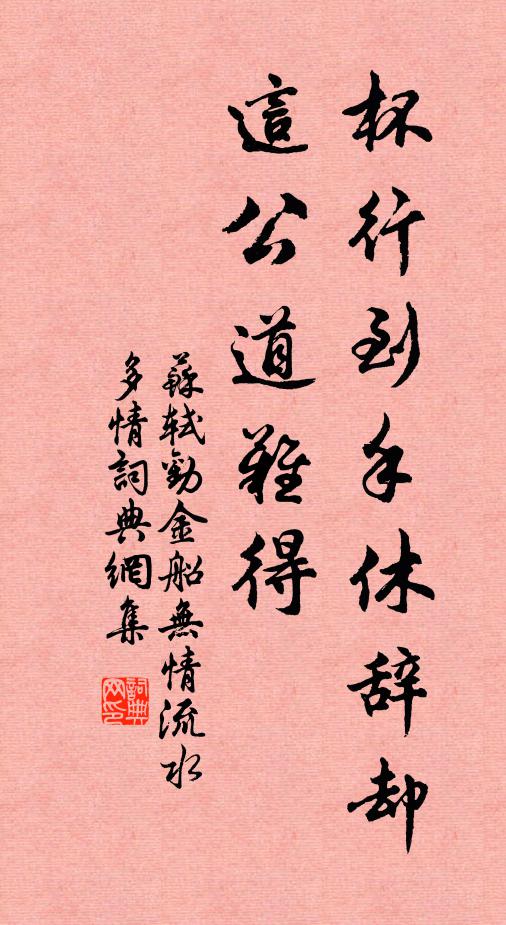 杯行到手休辞却
這公道難得
蘇軾勸金船無情流水
多情詞典網集
詞典
网印